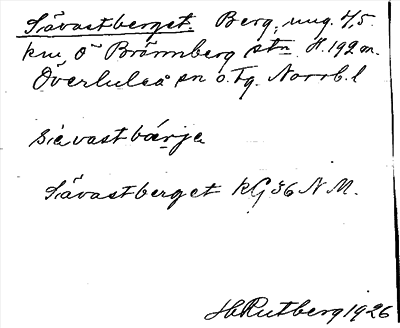 Sävastberget. Berg, ung. 4,5
km Ö Brännberg stn. H. 199 m.
Överluleå sn o. Tg. Norrb. l
siavastbárja
Sävastberget KG 36 N M.
Rutberg 1926